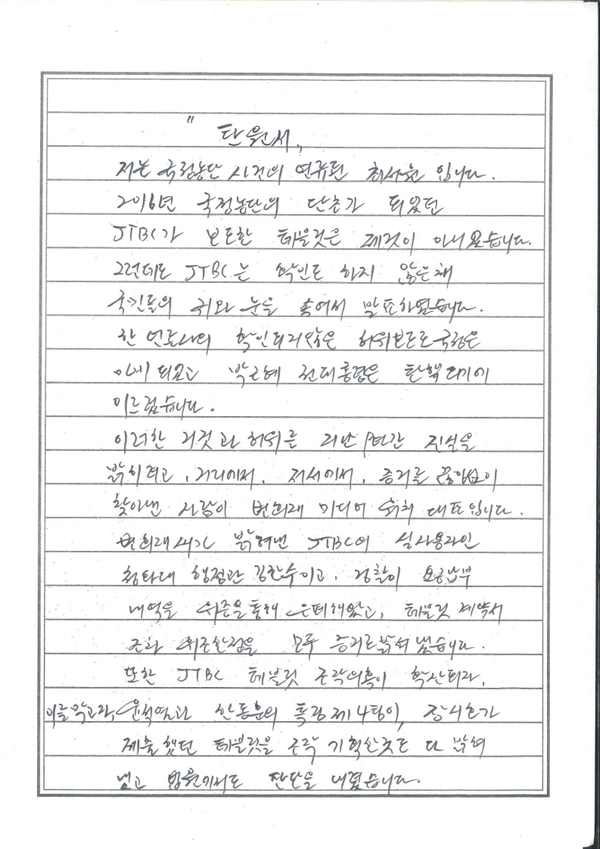 "탄원서„
저는 국정농단 사건의 연류된 최서원 입니다.
2016년 국정농단의 단초가 되었던
JTBC가 보도한 테블릿은 제것이 아니였습니다.
그런데도 JTBC는 확인도 하지 않은채
국민들의 귀와 눈을 속여서 발표하였습니다.
한 언론사의 확인되지않은 허위보도로 국정은
마비 되었고 박근혜 전대통령은 탄핵되기에
이르렀습니다.
이러한 거짓과 허위를 지난 8년간 진실을
밝히려고, 거리에서, 저서에서, 증거를 끊임없이
찾아낸 사람이 변희재 미디어 워치 대표입니다.
변희재씨가 밝혀낸 JTBC의 실사용자인
청와대 행정관 김한수이고, 검찰이 요금납부
내역을 위증을통해 은폐해왔고, 테블릿 계약서
조작 위조한점을 모두 증거로밝혀 냈습니다.
또한 JTBC 테블릿 조작의혹이 확산되자,
이를 막고자, 윤석열과 한동훈의 특검제4팀이, 장시호가
제출했던 테블릿을 조작 기획한것도 다 밝혀
냈고 법원에서도 판단을 내렸습니다.